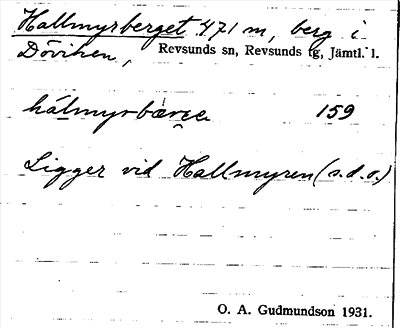 Hallmyrberget 471 m, berg i
Döviken, Revsunds sn, Revsunds tg, Jämtl. l.
hálmyrbæ̀rje 159
Ligger vid Hallmyren (s.d.o.)
O. A. Gudmundson 1931.